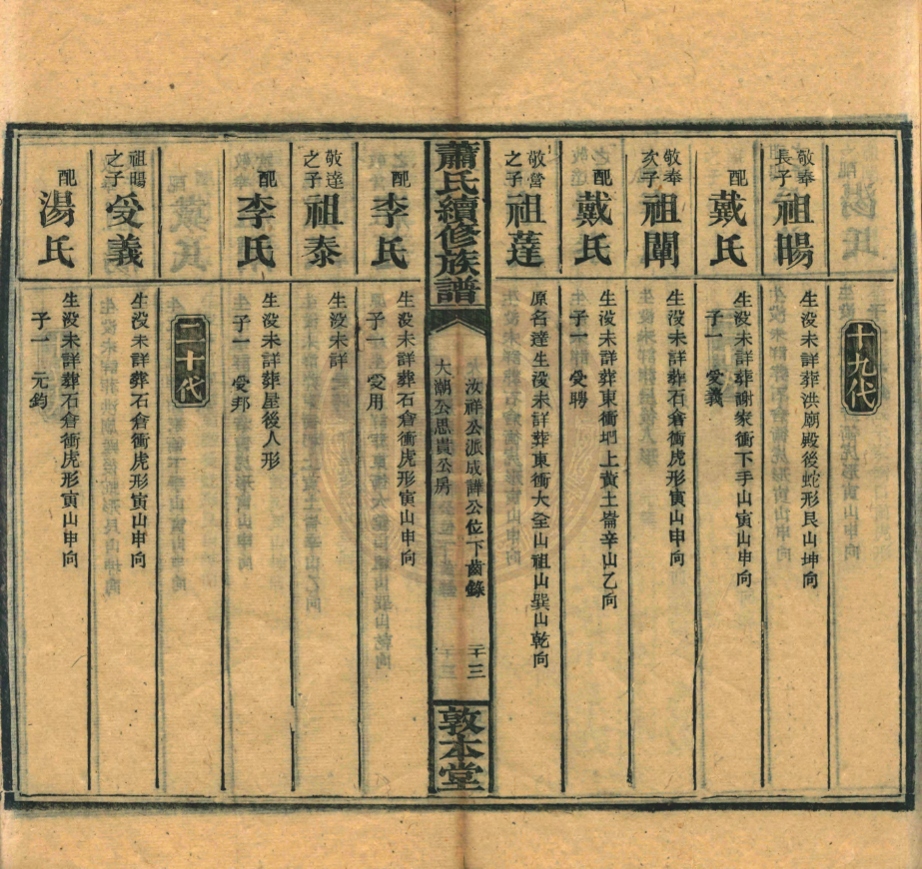 十九代
敬奉長子祖暘
生没未詳葬洪廟殿後蛇形艮山坤向
配戴氏
生没未詳葬謝家衝下手山寅山申向
子一 受義
敬奉次子祖闡
生没未詳葬石倉衝虎形寅山申向
配戴氏
生没未詳葬東衝垇上黃土崙辛山乙向
子一 受聘
敬營之子祖薘
原名達生没未詳葬東衝大全山祖山巽山乾向
蕭氏續修族譜
汝祥公派成譁公位下齒錄
大湖公思貴公房
二十三
敦本堂
配李氏
生没未詳葬石倉衝虎形寅山申向
子一 受用
敬達之子祖泰
生没未詳
配李氏
生没未詳葬屋後人形
子一 受邦
二十代
祖暘之子受義
生没未詳葬石倉衝虎形寅山申向
配湯氏
生没未詳葬石倉衝虎形寅山申向
子一 元鈞